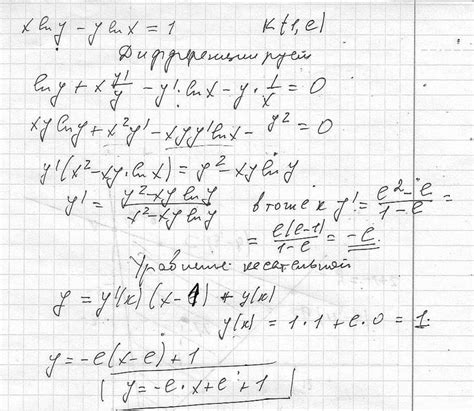 x ln y - y ln x = 1 K(1, e)
Дифференцируем
ln y + x y'/y - y' · ln x - y · 1/x = 0
xy ln y + x² y' - xyy' ln x - y² = 0
y'(x² - xy · ln x) = y² - xy ln y
y' = (y² - xy ln y)/(x² - xy ln y) в точке K y' = (e² - e)/(1 - e) =
= e(e-1)/(1-e) = -e.
Уравнение касательной
y = y'(x)(x-1) + y(x)
y(x) = 1 · 1 + e · 0 = 1.
y = -e(x-e) + 1
y = -e · x + e + 1